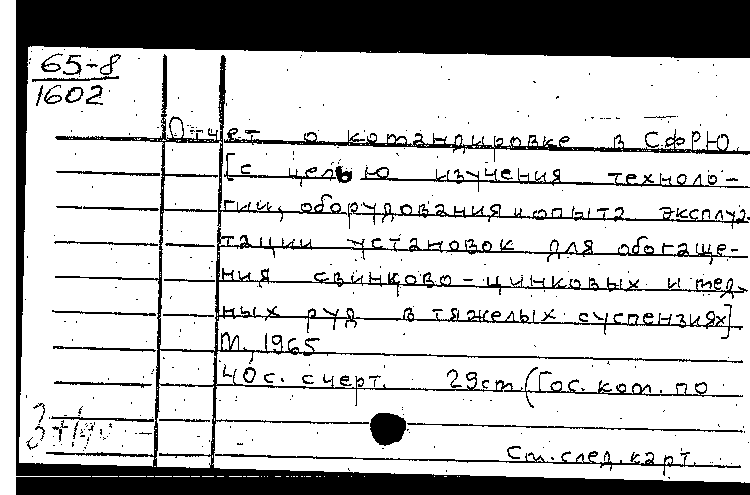 65-8
1602
Отчет о командировке в СФРЮ.
[с целью изучения техноло-
гии, оборудования и опыта эксплуа-
тации установок для обогаще-
ния свинково-цинковых и мед-
ных руд в тяжелых суспензиях]
М., 1965
40 с. с черт. 29 см. (Гос. ком. по
См. след. карт.